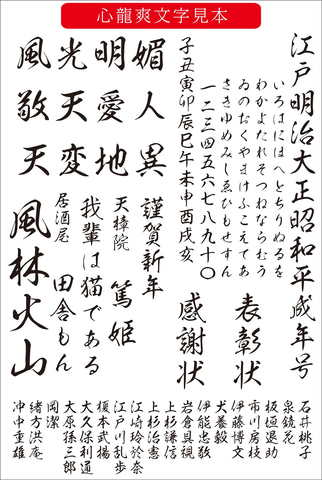 心龍爽文字見本
江戸明治大正昭和平成年号
いろはにほへとちりぬるを
わかよたれそつねならむう
ゐのおくやまけふこえてあ
さきゆめみしゑひもせすん
一二三四五六七八九十〇
子丑寅卯辰巳午未申酉戌亥
表彰状
感謝状
媚人異
明愛地
光天変
風敬天
謹賀新年
天樟院 篤姫
我輩は猫である
居酒屋 田舎もん
風林火山
石井桃子
泉鏡花
板垣退助
市川房枝
伊藤博文
伊能忠敬
犬養毅
岩倉具視
上杉謙信
上杉治憲
江崎玲於奈
江戸川乱歩
榎本武揚
大久保利通
大原孫三郎
岡潔
緒方洪庵
沖中重雄